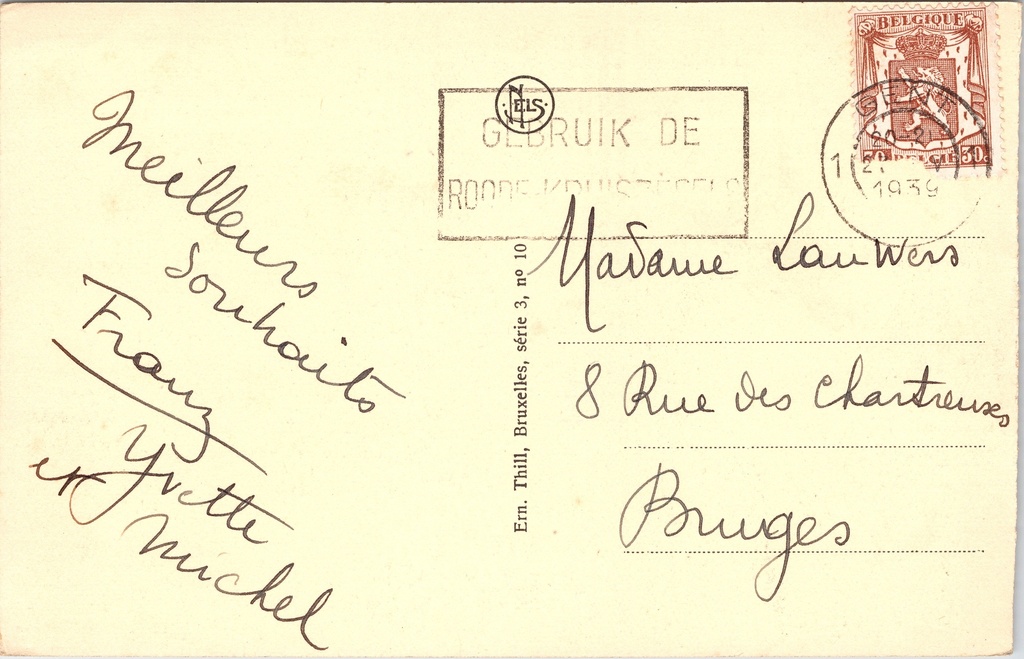 Meilleurs
Souhaits
Franz
Yvette
et Michel
NELS
GEBRUIK DE
ROODE-KRUISZEGELS
BELGIQUE
BELGIE 30c
GENT
1 1
1939
Ern. Thill, Bruxelles, série 3, nº 10
Madame Lauwers
8 Rue des Chartreuses
Bruges